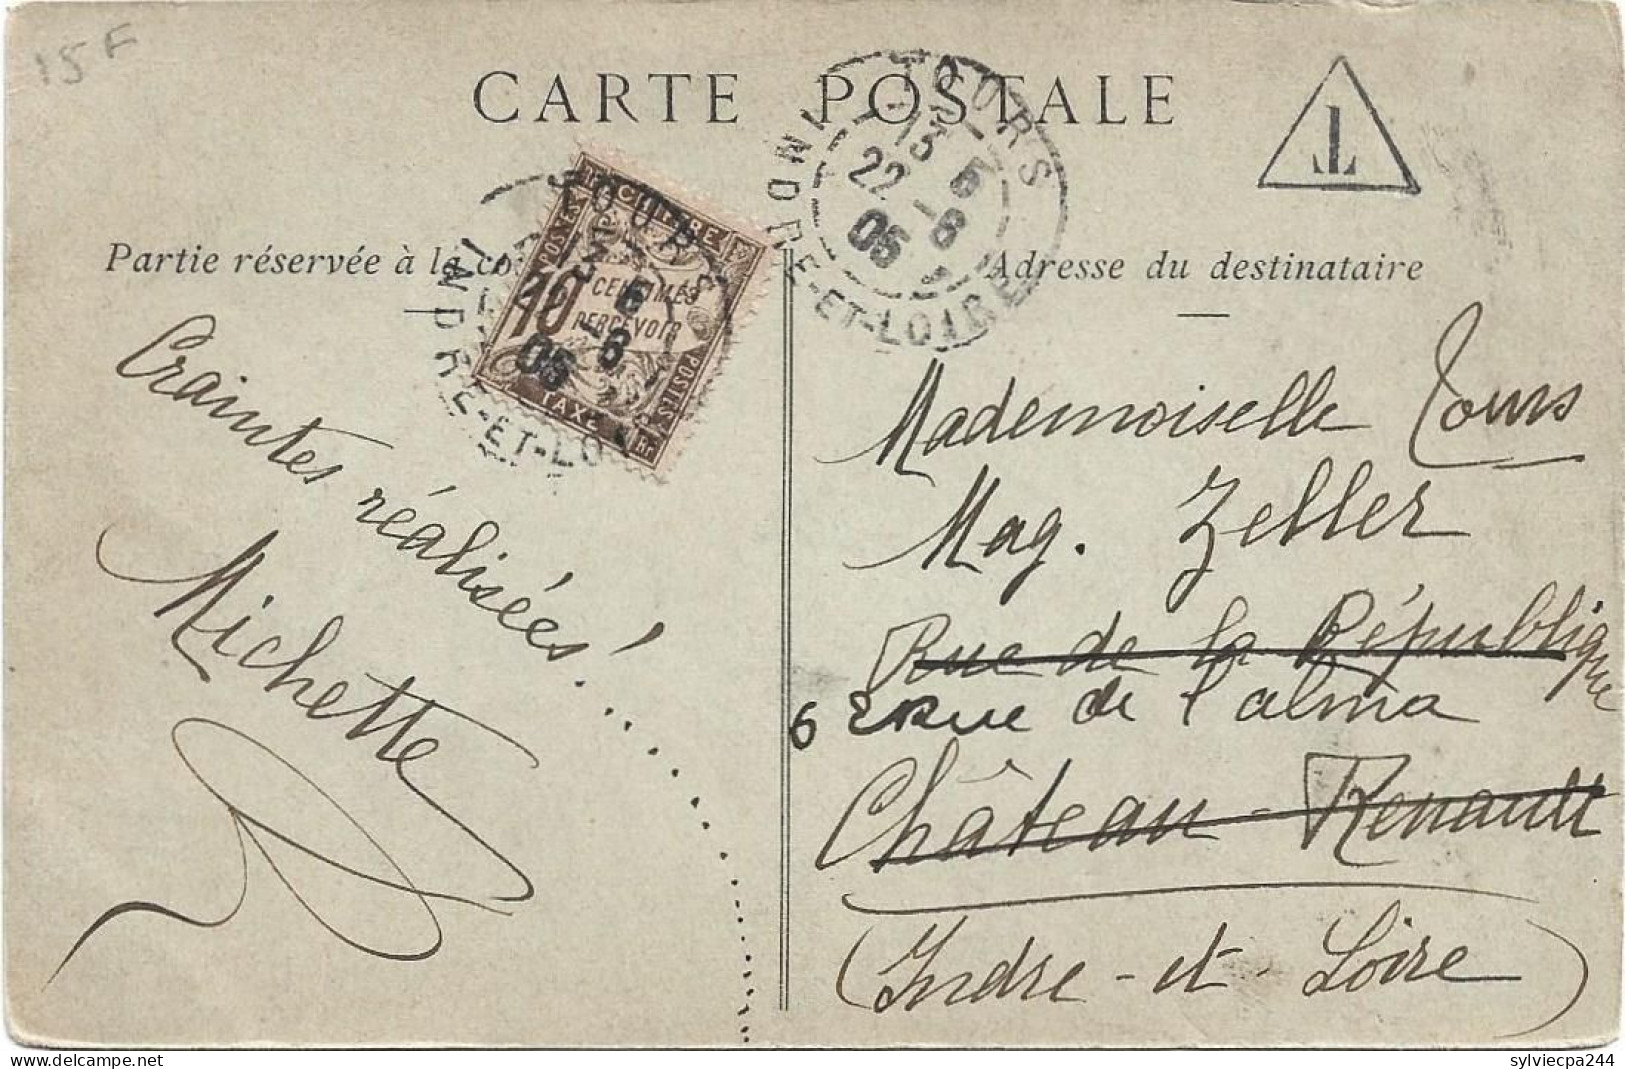 15F
CARTE POSTALE
T
TOURS
13 5
22 -8
05
INDRE-ET-LOIRE
Partie réservée à la co
Adresse du destinataire
CHIFFRE
POSTES
10 CENTIMES
PERCEVOIR
TAXE
POSTES
RF
TOURS
8
05
INDRE-ET-LO
Craintes réalisées! ......
Michette
Mademoiselle Tours
Mag. Zeller
Rue de la République
6 Rue de l'alma
Château-Renault
(Indre-et-Loire)
sylviecpa244